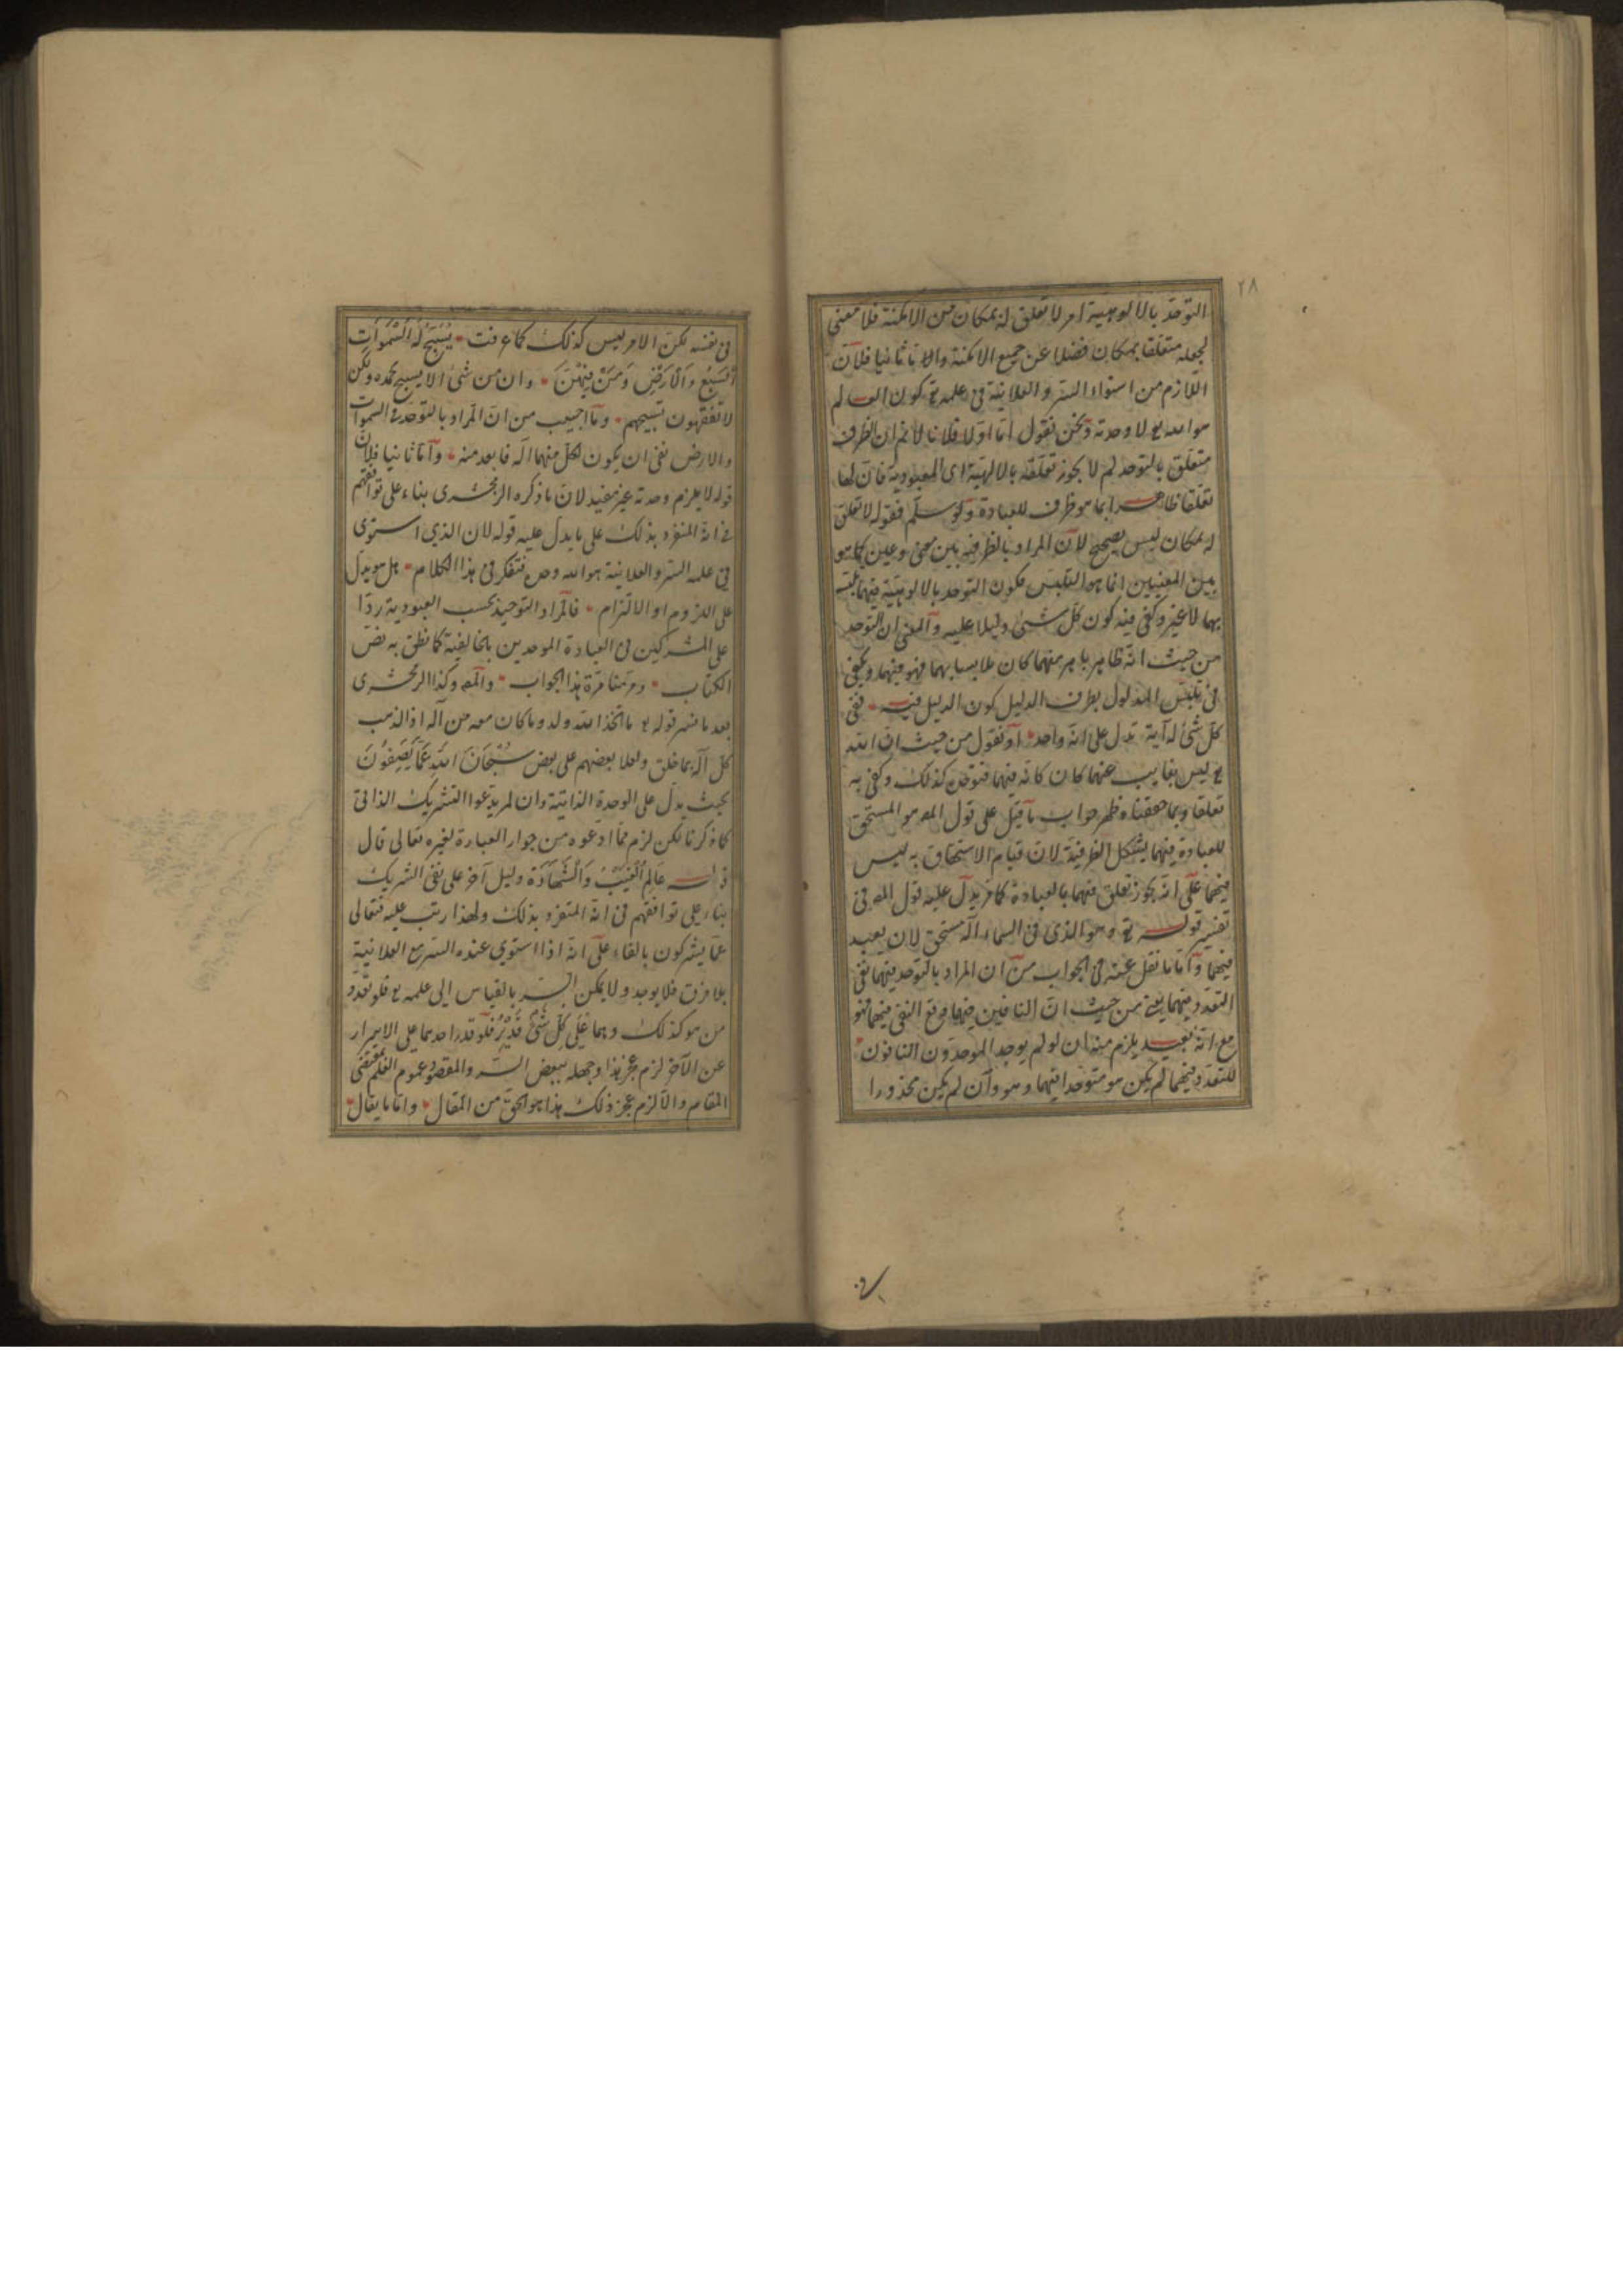 ٢٨
التوحد بالالوهية امر لا تعلق له بمكان من الامكنة فلا معنى
لجعله متعلقا بمكان فضلا عن جميع الامكنة واما ثانيا فلان
اللازم من استواء السر والعلانية فى علمه تع كون العالم
هو الله تع لا وحدته ونحن نقول اما اولا فلانا لانم ان الظرف
متعلق بالتوحد لم لا يجوز تعلقه بالالهية اى المعبودية فان لها
تعلقا ظاهرا بما هو ظرف للعبادة ولو سلم فقوله لا تعلق
له بمكان ليس بصحيح لان المراد بالظرفية بين معنى وعين كما هو
بين المعنيين انما هو التلبس فكون التوحد بالالوهية فيهما تلبسه
بهما لا غير وكفى فيه كون كل شئ دليلا عليه والمعنى ان التوحد
من حيث انه ظاهر باهر منهما كان ملابسا بهما فهو فيهما ويكفى
فى تلبس المدلول بطرف الدليل كون الدليل فيه ففى
كل شئ له آية تدل على انه واحد او نقول من حيث ان الله
تع ليس بغايب عنهما كان كانه فيهما فتوحده كذلك وكفى به
تعلقا وبما حققناه ظهر جواب ما قيل على قول المص هو المستحق
للعبادة فيهما يشكل الظرفية لان قيام الاستحقاق به ليس
فيهما على انه يجوز تعلق فيهما بالعبادة كما مر يدل عليه قول المص فى
تفسير قوله تع وهو الذى فى السماء اله مستحق لان يعبد
فيهما واما ما نقل عنه فى الجواب من ان المراد بالتوحد فيهما نفى
التعدد فيهما يعنى من حيث ان النافين فيهما فوقع النفى فيهما فهو
مع انه بعيد يلزم منه ان لو لم يوجد الموحدون النافون
للتعدد فيهما لم يكن هو متوحدا فيهما وهو وان لم يكن محذورا
فى نفسه لكن الامر ليس كذلك كما عرفت يُسَبِّحُ لَهُ السَّمٰوَاتُ
السَّبْعُ وَالْاَرْضُ وَمَنْ فِيهِنَّ وان من شئ الا يسبح بحمده ولكن
لا تفقهون تسبيحهم وما اجيب من ان المراد بالتوحد فى السموات
والارض نفى ان يكون لكل منهما اله فابعد منه واما ثانيا فلان
قوله لا يلزم وحدته غير مفيد لان ما ذكره الزمخشرى بناء على توافقهم
فى انه المنفرد بذلك على ما يدل عليه قوله لان الذي استوى
فى علمه السر والعلانية هو الله وحده فتفكر فى هذا الكلام هل هو يدل
على اللزوم او الالتزام فالمراد التوحيد بحسب العبودية ردا
على المشركين فى العبادة الموحدين بالخالقية كما نطق به نص
الكتاب ومر منا مرة هذا الجواب والمص وكذا الزمخشرى
بعد ما فسر قوله تع ما اتخذ الله ولد وما كان معه من اله اذا لذهب
كل اله بما خلق ولعلا بعضهم على بعض سُبْحَانَ اللهِ عَمَّا يَصِفُونَ
بحيث يدل على الوحدة الذاتية وان لم يدعوا التشريك الذاتى
كما ذكرنا لكن لزم مما ادعوه من جواز العبادة لغيره تعالى قال
قوله عَالِمِ الْغَيْبِ وَالشَّهَادَةِ دليل آخر على نفى الشريك
بناء على توافقهم فى انه المتفرد بذلك ولهذا رتب عليه فتعالى
عما يشركون بالفاء على انه اذا استوي عنده السر مع العلانية
بلا فرق فلا يوجد ولا يمكن السر بالقياس الى علمه تع فلو تعدد
من هو كذلك وهما عَلٰى كُلِّ شَئْ قَدِيرٌ فلو قدر احدهما على الاسرار
عن الآخر لزم عجز هذا وجهله ببعض السر والمقصود عموم العلم بمقتضى
المقام والا لزم عجز ذلك هذا هو الحق من المقال واما ما يقال